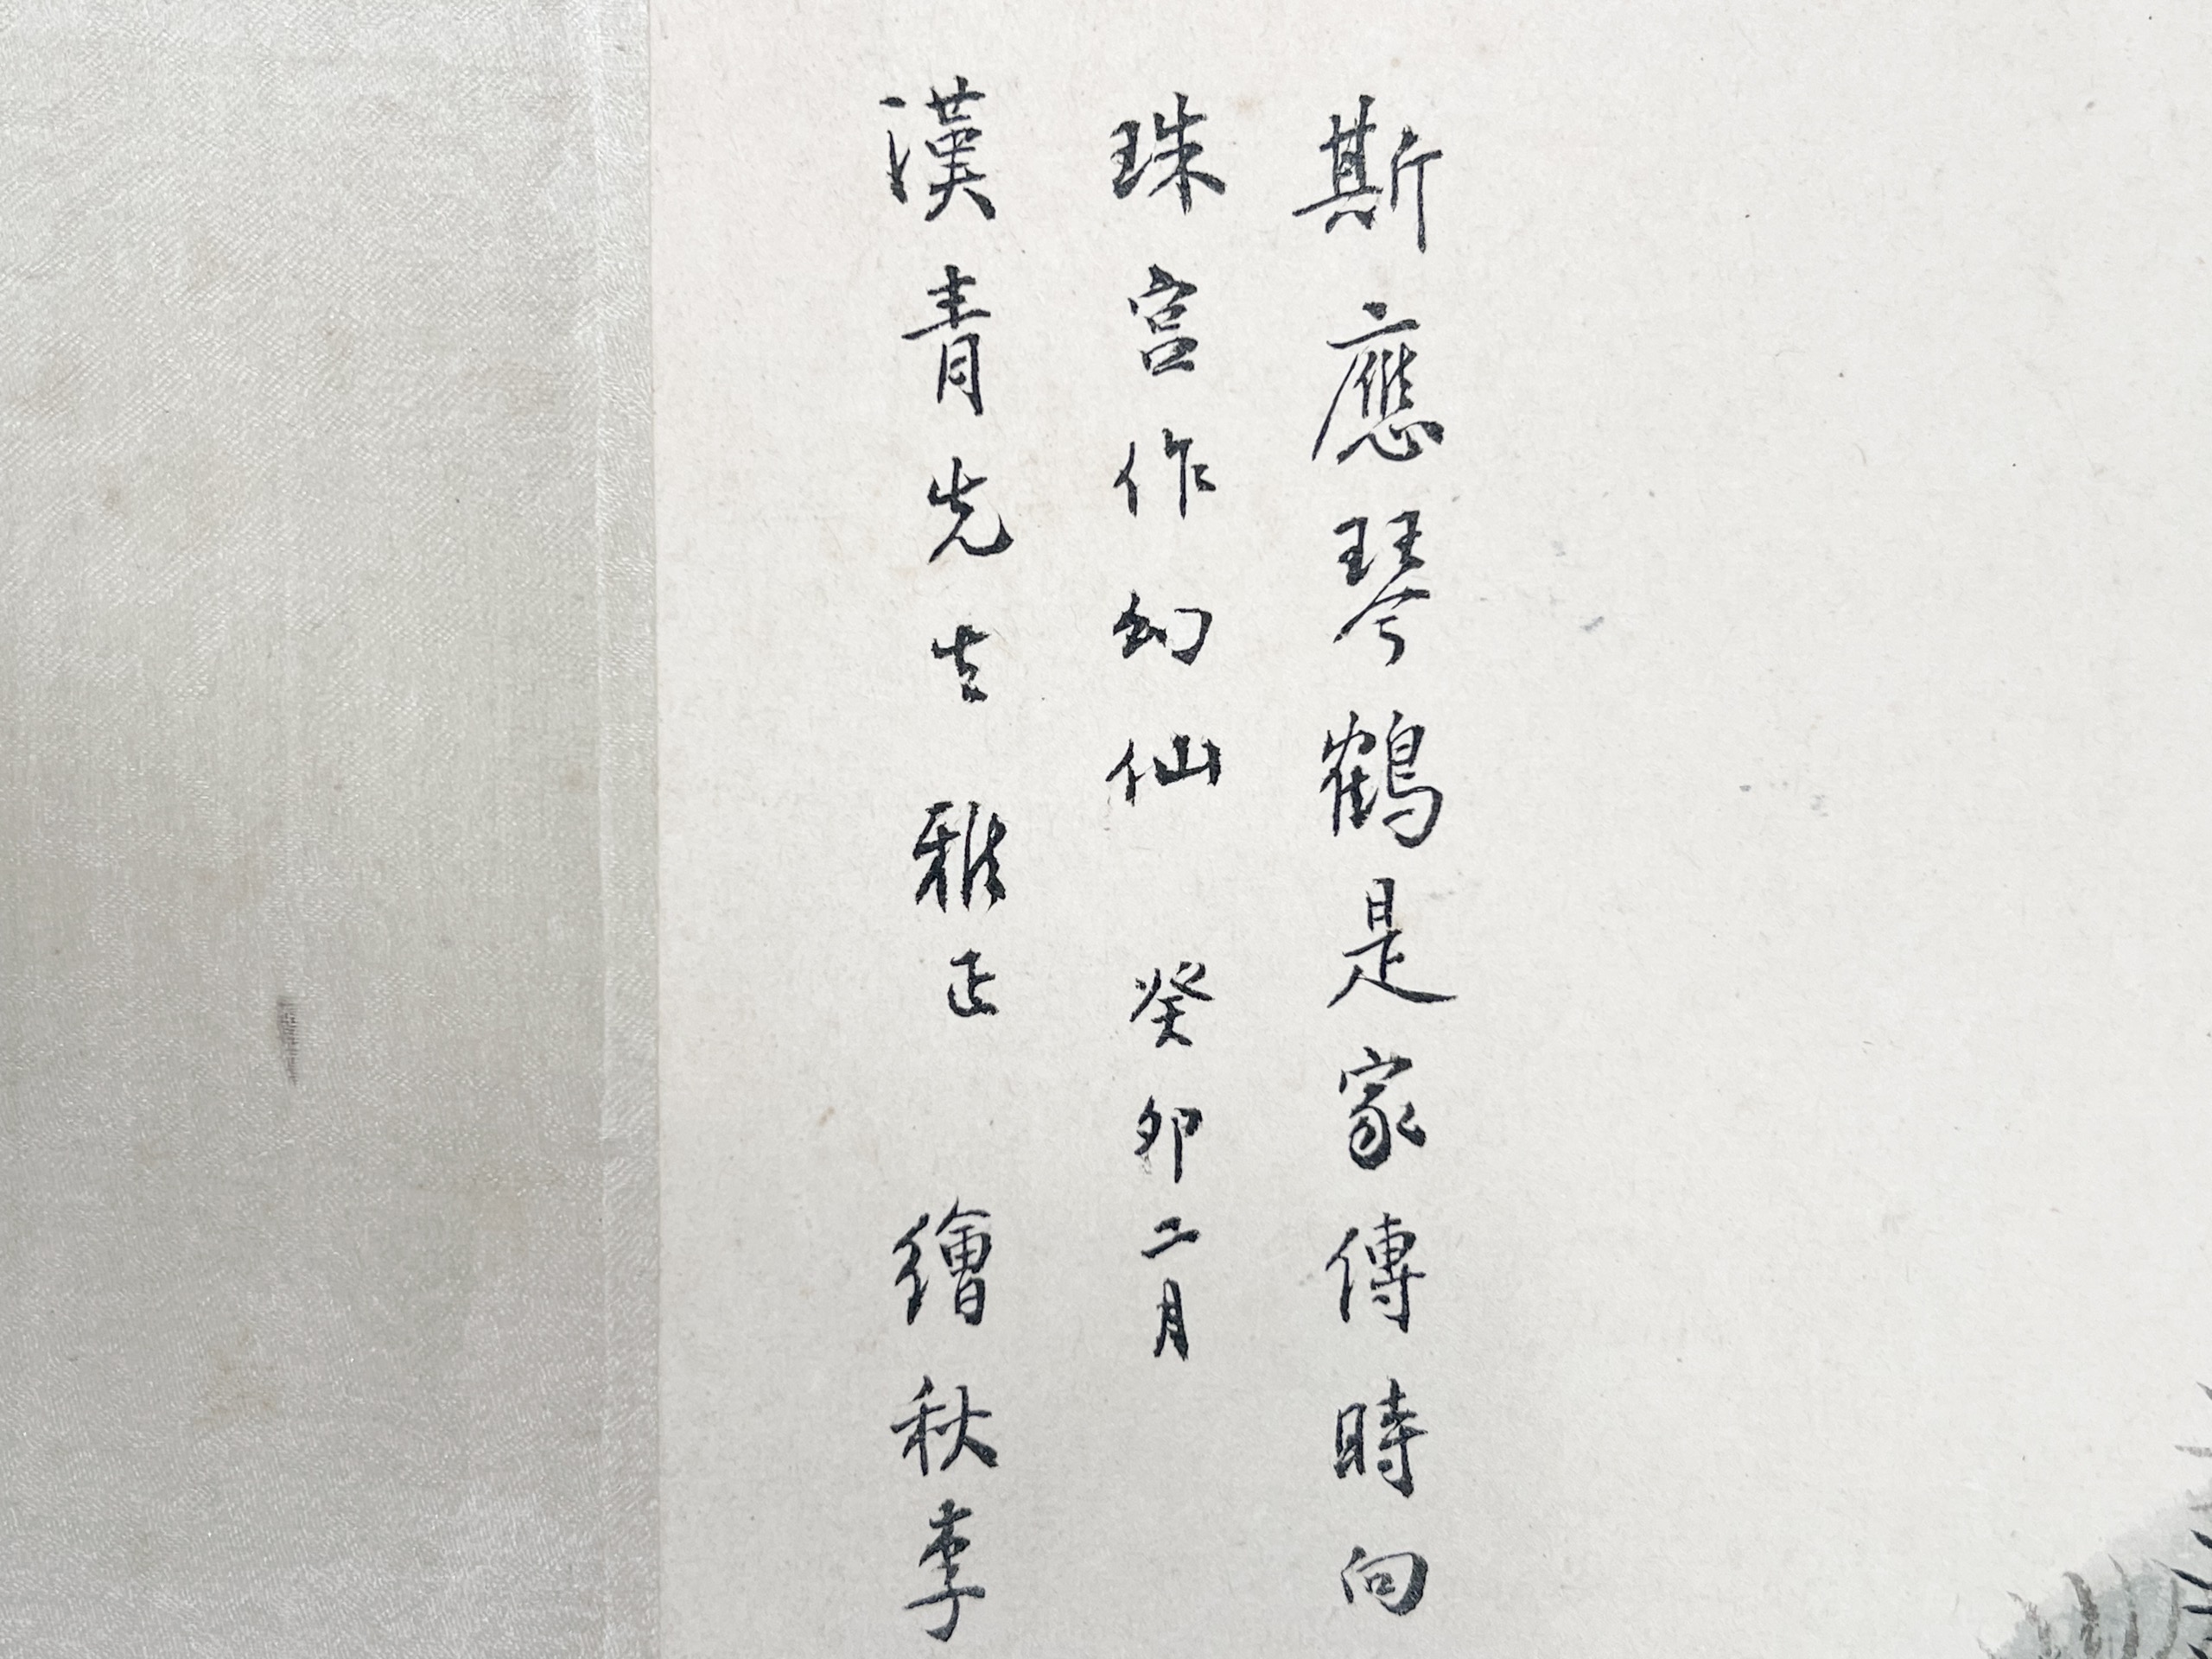 斯應琴鶴是家傳時向
珠宮作幻仙 癸卯二月
漢青先生 雅正 繪秋李